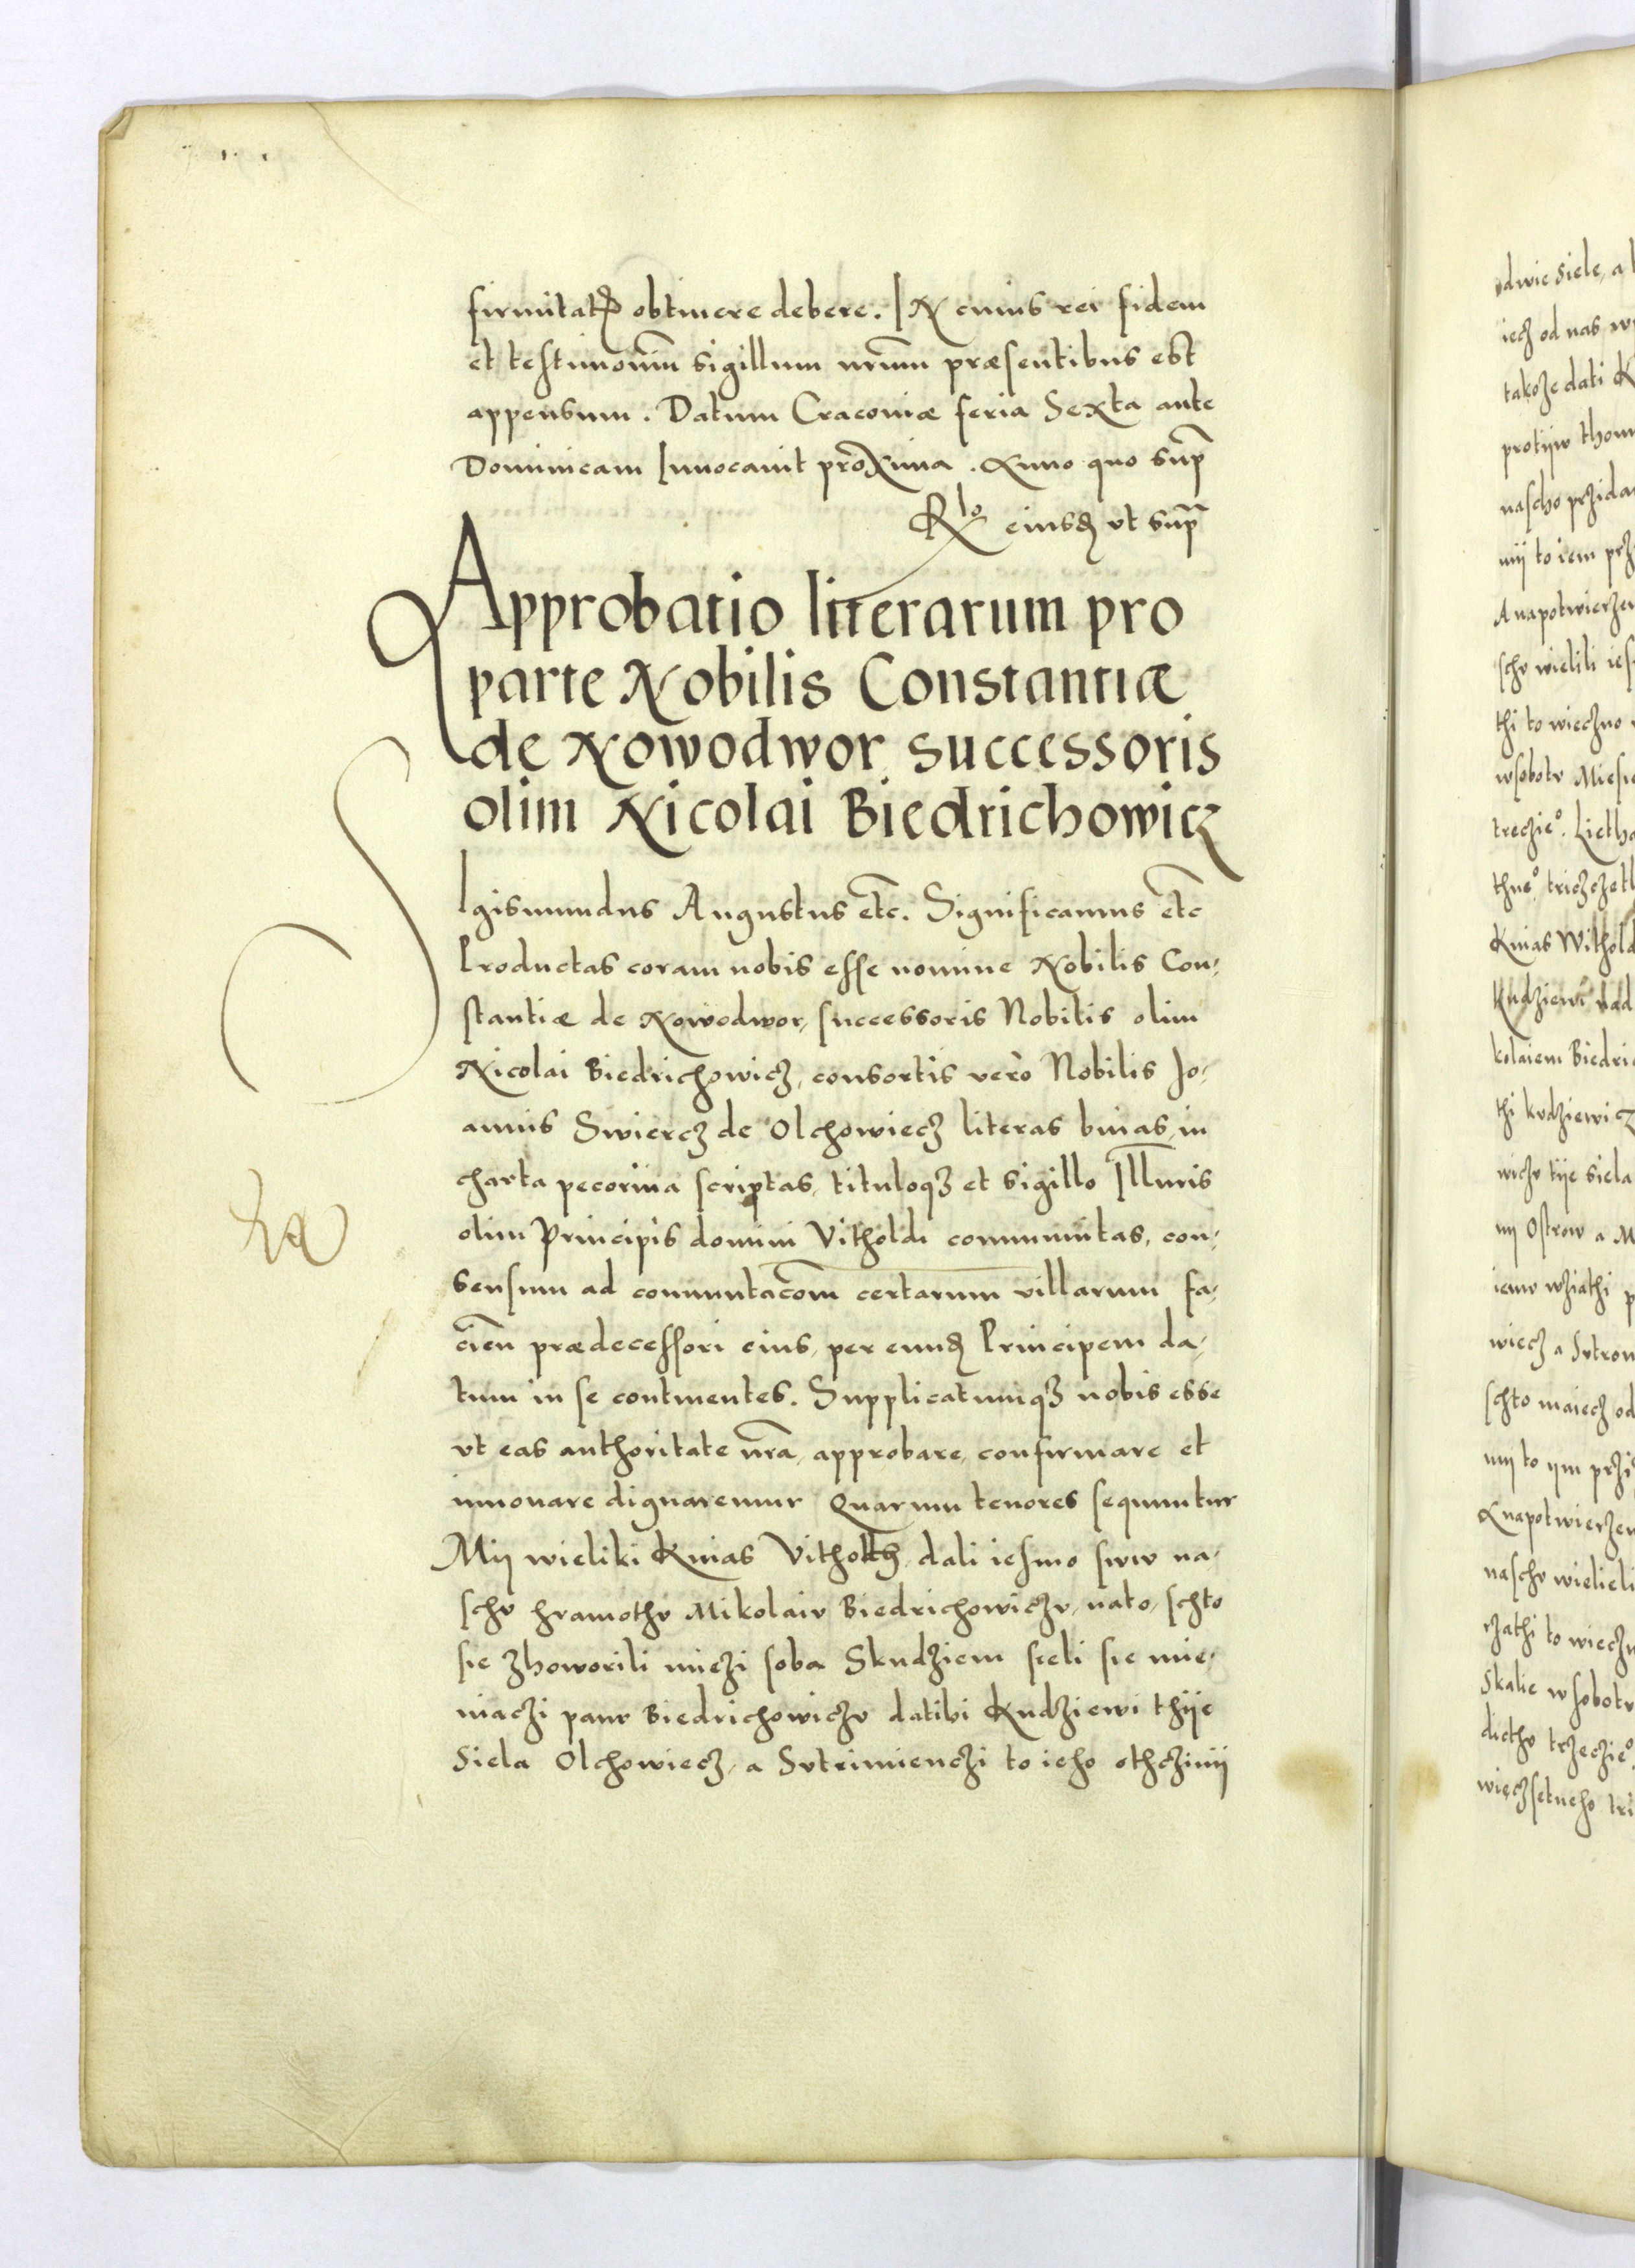 firmitatẽ obtinere debere. IN cuius rei fidem
et testimoniũ sigillum nr̃um præsentibus est
appensum. Datum Cracoviæ feria Sexta ante
Dominicam Invocavit proxima. Anno quo supr̃
Rlo eiusdẽ ut supra
Approbatio literarum pro
parte Nobilis Constantiæ
de Nowodwor successoris
olim Nicolai Biedrichowicz
SIgismundus Augustus etc̃. Significamus etc̃
Productas coram nobis esse nomine Nobilis Con-
stantiæ de Nowodwor, successoris Nobilis olim
Nicolai Biedrichowicz, consortis verò Nobilis Jo-
annis Swiercz de Olchowiecz literas binas, in
charta pecorina scriptas, tituloqȝ et sigillo Illũris
olim Principis domini Vitholdi communitas, con-
sensum ad commutacõm certarum villarum fa-
cieñ prædecessori eius, per eundẽ Principem da-
tum in se continentes. Supplicatumqȝ nobis esse
vt eas authoritate nr̃a, approbare, confirmare et
innovare dignaremur Quarum tenores sequuntur
Mij wieliki Knias Vitholth, dali iesmo sww na-
schv hramothv Mikolaiv Biedrichowiczv, nato, schto
sie zhoworili miezi soba Skudziem sieli sie mie-
niaczi panv Biedrichowiczv datibi Kudziewi thije
Siela Olchowiecz, a Svtrimienczi to ieho othczinij
odwie siele, a
iecz od nas
takoze dati K
protijw thom
nascho przida
mij to iem prz
A napotwierzen
schv wielili ies
thi to wieczno
wsobotv Miesi
treczieo. Lieth
thneo. triczczeth
Knias Withold
Kudziewi nad
kolaiem Biedri
thi kvdziewicz
wiczv tije siela
nij Ostrow a M
iemv wziathi p
wiecz a Svtrow
schto maiecz od
mij to ijm przi
Anapotwierzen
naschv wielieli
rzathi to wieczn
Skalie wsobotv
dicthv trzeczieo.
wieczsetneho tri